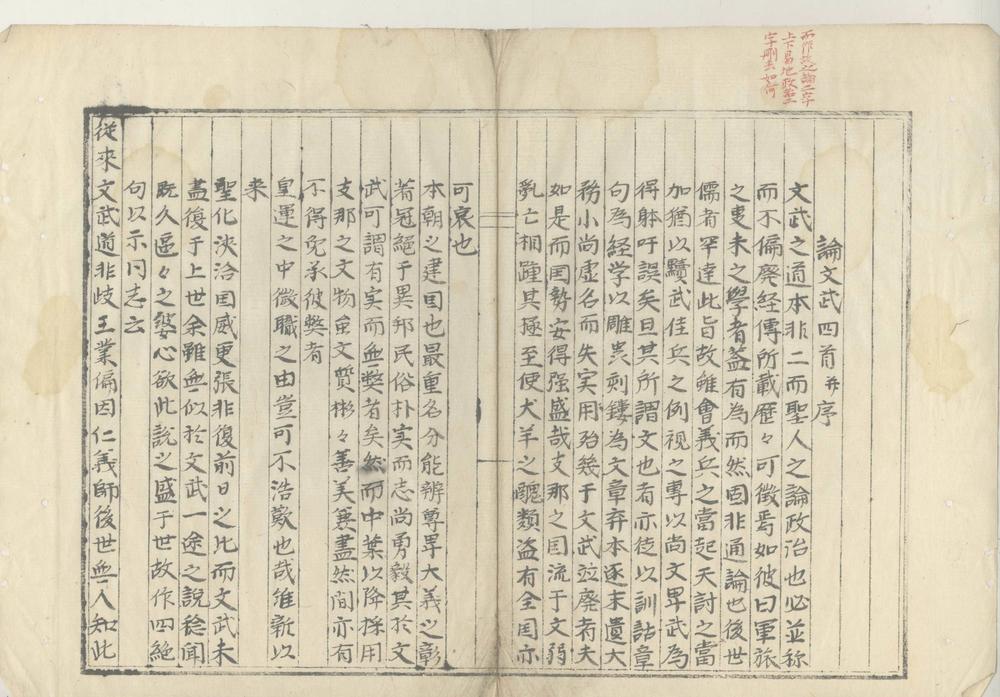 而作故之論之六字
上下易地政第二
字刪去如何
論文武四首并序
文武之道本非二而聖人之論政治也必並称
而不偏廃経傳所載歴々可徴焉如彼曰軍旅
之叓未之學者葢有為而然固非通論也後世
儒者罕達此旨故雖會義兵之當起天討之當
加猶以黷武佳兵之例視之專以尚文卑武為
得躰吁誤矣且其所謂文也者亦徒以訓詁章
句為経学以雕虫刻鏤為文章弃本逐末遺大
務小尚虚名而失実用殆幾于文武竝廃者夫
如是而囯勢安得强盛哉支那之囯流于文弱
乱亡相踵其極至使犬羊之醜類盗有全囯亦
可哀也
本朝之建囯也最重名分能辨尊卑大義之彰
著冠絶于異邦民俗朴実而志尚勇毅其於文
武可謂有実而無弊者矣然而中葉以降採用
支那之文物虽文質彬々善美兼盡然間亦有
不得免承彼弊者
皇運之中微職之由豈可不浩歎也哉維新以
来
聖化浹洽囯威更張非復前日之比而文武未
盡復于上世余雖無似於文武一途之說稔聞
既久區々之婆心欲此説之盛于世故作四絶
句以示同志云
従来文武道非岐王業偏因仁義師後世無人知此